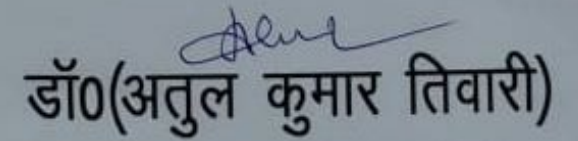 डॉ0(अतुल कुमार तिवारी)